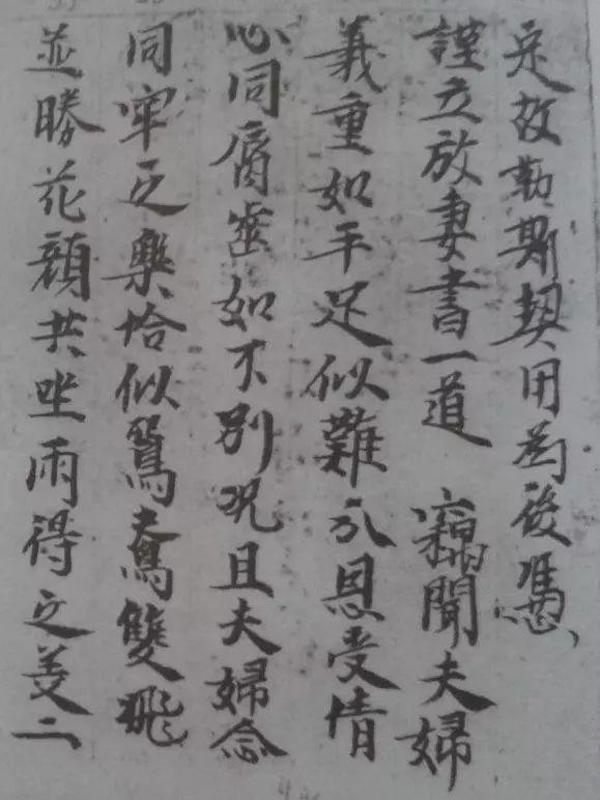 定故勒斯契用為後憑
謹立放妻書一道 竊聞夫婦
義重如手足似難分恩受情
心同唇齒如不別況且夫婦念
同牢之樂恰似鴛鴦雙飛
並勝花顏共坐兩得之美二